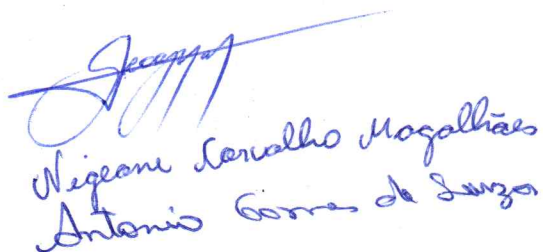 Nigeane Carvalho Magalhães
Antonio Gomes de Souza